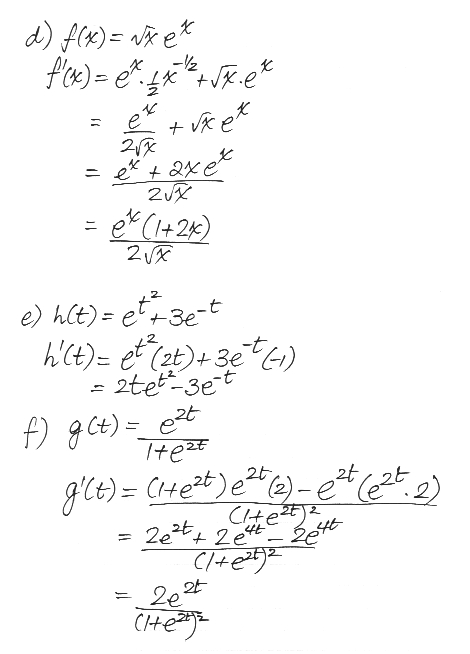 d) f(x) = √x e^x
f'(x) = e^x · 1/2 x^(-1/2) + √x · e^x
= e^x / 2√x + √x e^x
= (e^x + 2x e^x) / 2√x
= e^x (1+2x) / 2√x
e) h(t) = e^(t^2) + 3e^(-t)
h'(t) = e^(t^2) (2t) + 3e^(-t) (-1)
= 2te^(t^2) - 3e^(-t)
f) g(t) = e^(2t) / (1+e^(2t))
g'(t) = ((1+e^(2t)) e^(2t) (2) - e^(2t) (e^(2t) · 2)) / (1+e^(2t))^2
= (2e^(2t) + 2e^(4t) - 2e^(4t)) / (1+e^(2t))^2
= 2e^(2t) / (1+e^(2t))^2